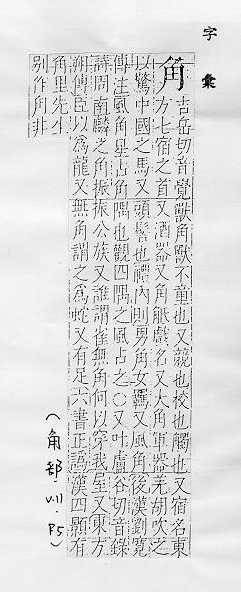 字彙
角
吉岳切音覺獸角獸不童也又競也校也觸也又宿名東
方七宿之首又酒器又角觝戲名又大角軍器羌胡吹之
以驚中國之馬又頭髻也禮內則男角女羈又風角後漢劉寬
傳注風角星占角隅也觀四隅之風占之○又叶盧谷切音錄
詩周南麟之角振振公族又誰謂雀無角何以穿我屋又東方
朔傳臣以為龍又無角謂之為蛇又有足六書正譌漢四顥有
角里先生
別作甪非
(角部.v.11.P5)